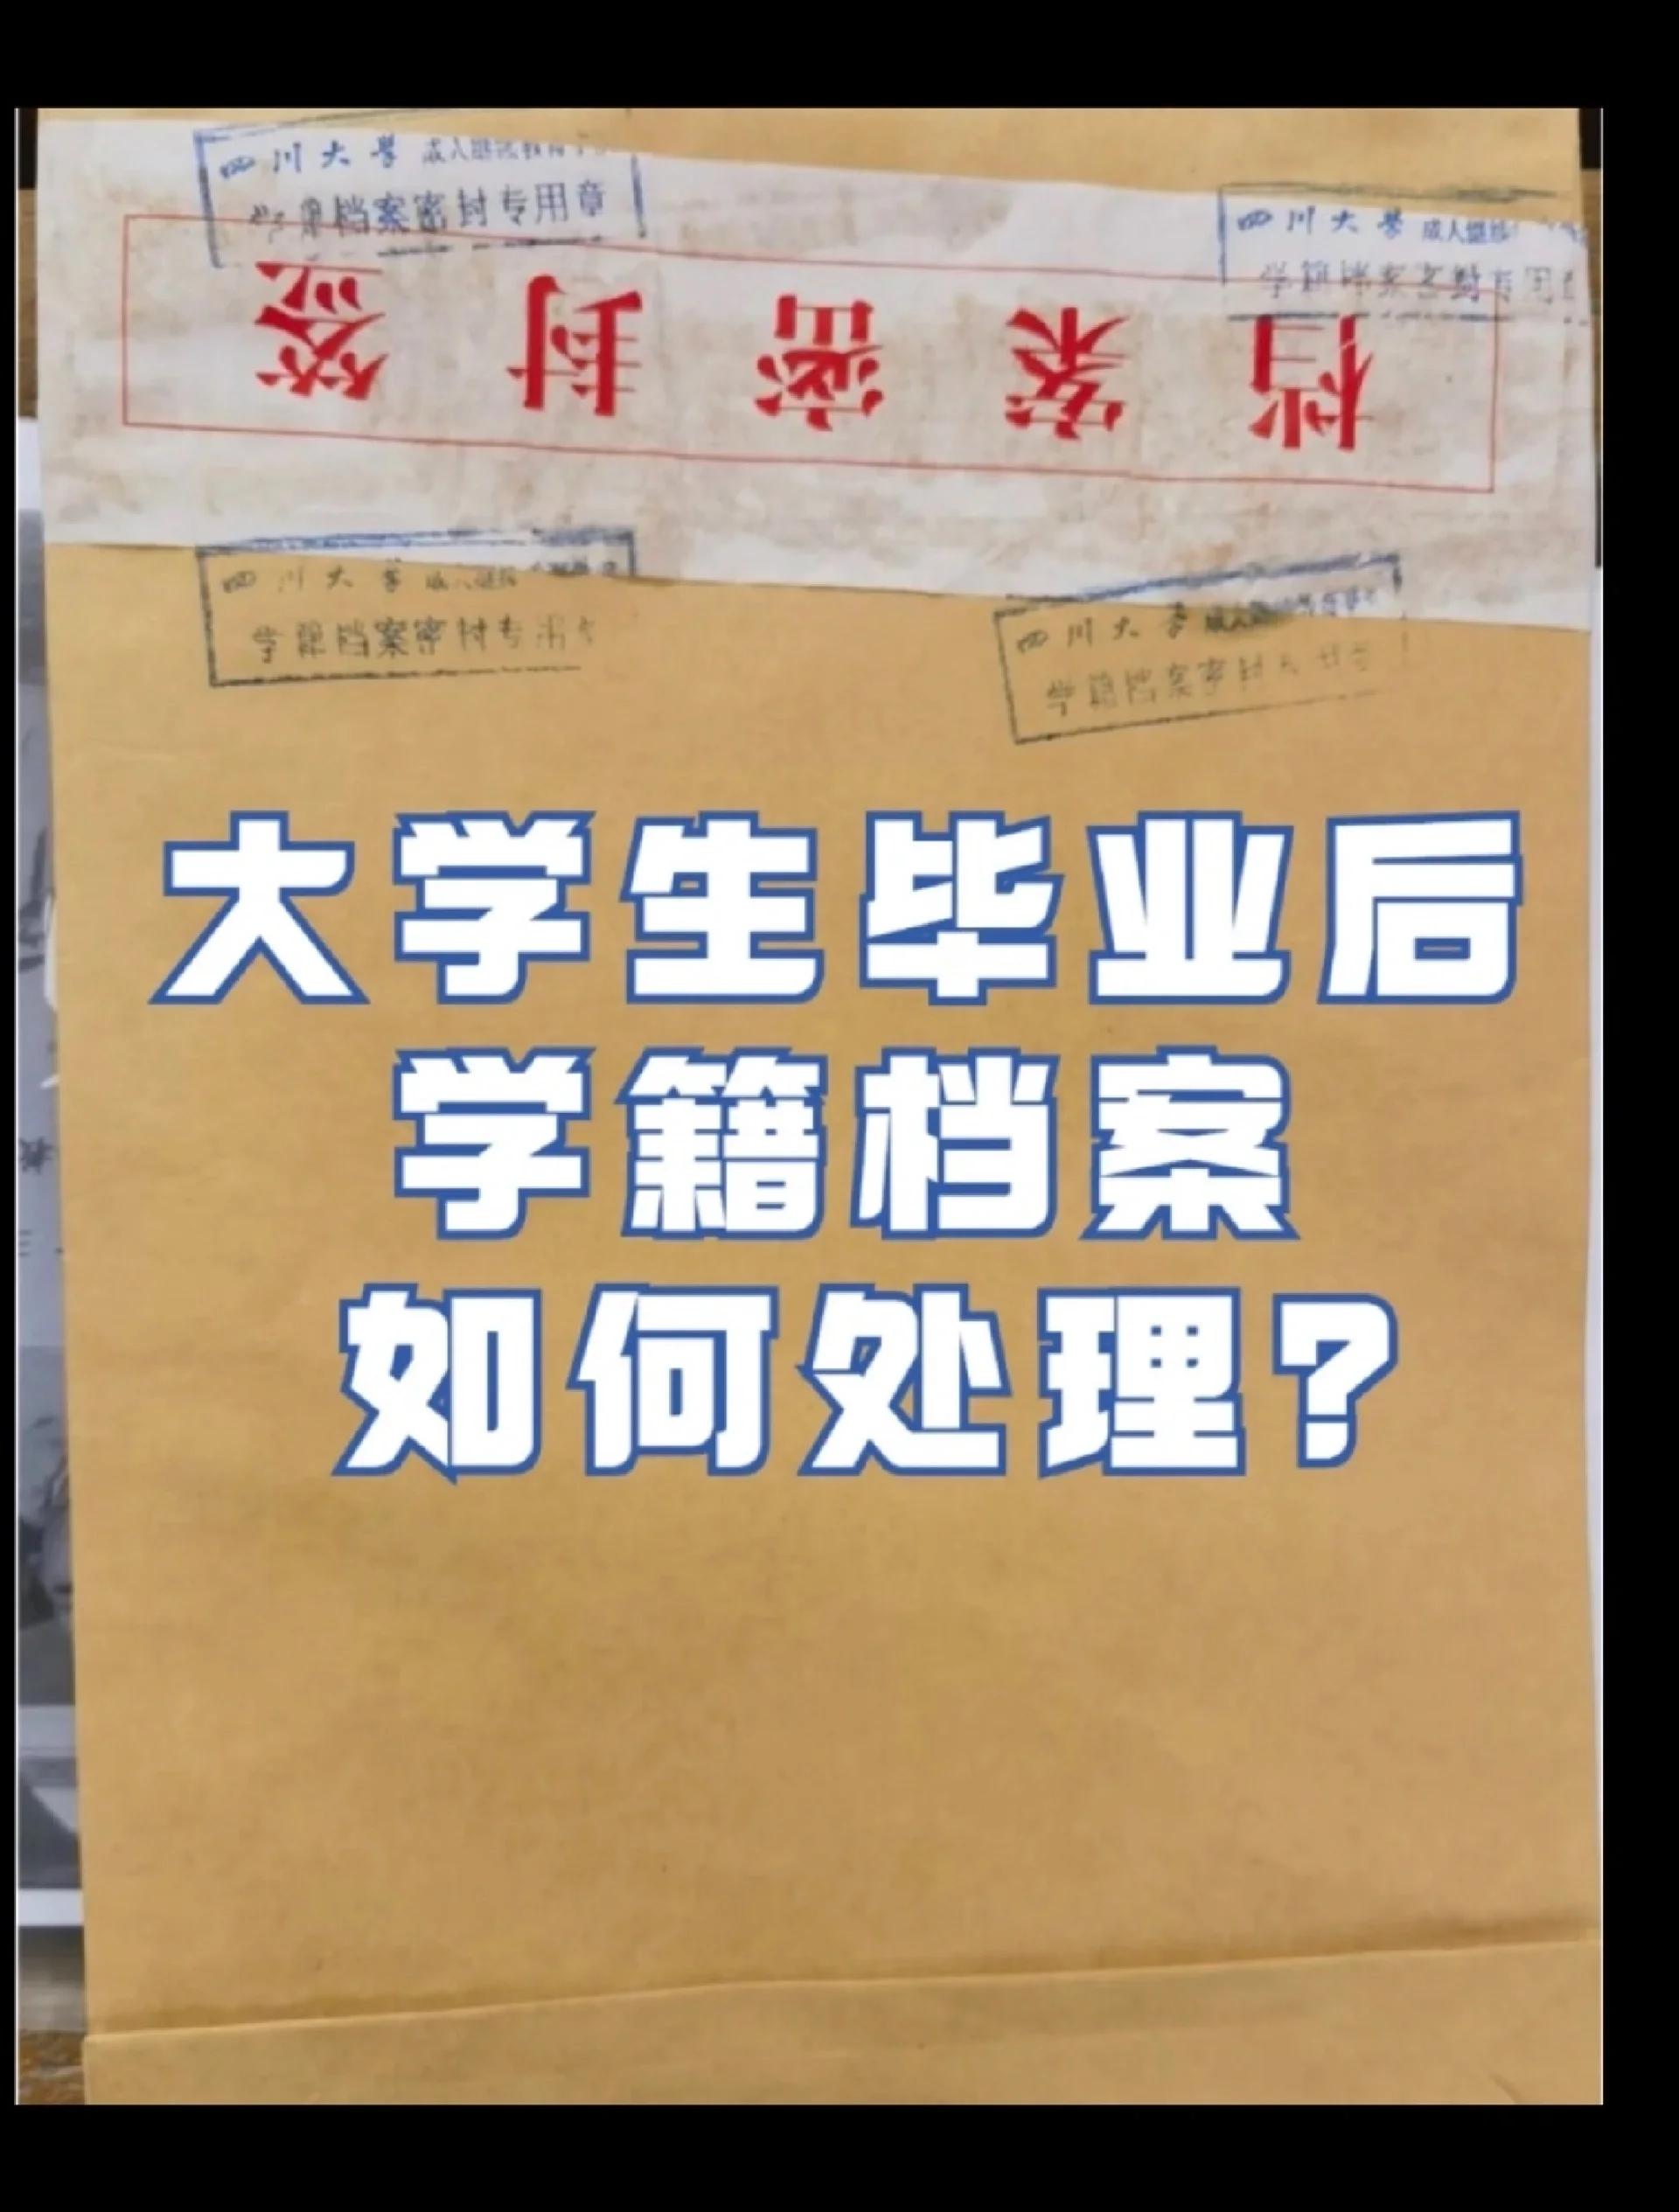 四川大学 成人继续教育学
学籍档案密封专用章
四川大学 成人继续
学籍档案密封专用
档案密封签
四川大学 成人继续
学籍档案密封专用
四川大学 成人继续教育学
学籍档案密封
大学生毕业后
学籍档案
如何处理?